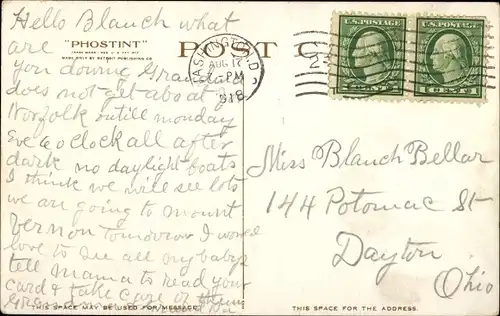 Hello Blanch what
are
you doing Grandad
does not get a boat
Norfolk untill monday
Eve 6 o clock all after
dark no daylight boats
I think we will see lots
we are going to mount
Vernon tomorrow I would
love to see all my babys
tell mama to read your
card & take care of them
Grand
THIS SPACE MAY BE USED FOR MESSAGE.
"PHOSTINT"
MADE ONLY BY DETROIT PUBLISHING CO.
POST C
WASHINGTON, D.C.
AUG 17
PM
1918
U.S. POSTAGE
U.S. POSTAGE
Miss Blanch Bellar
144 Potomac St
Dayton
Ohio
THIS SPACE FOR THE ADDRESS.